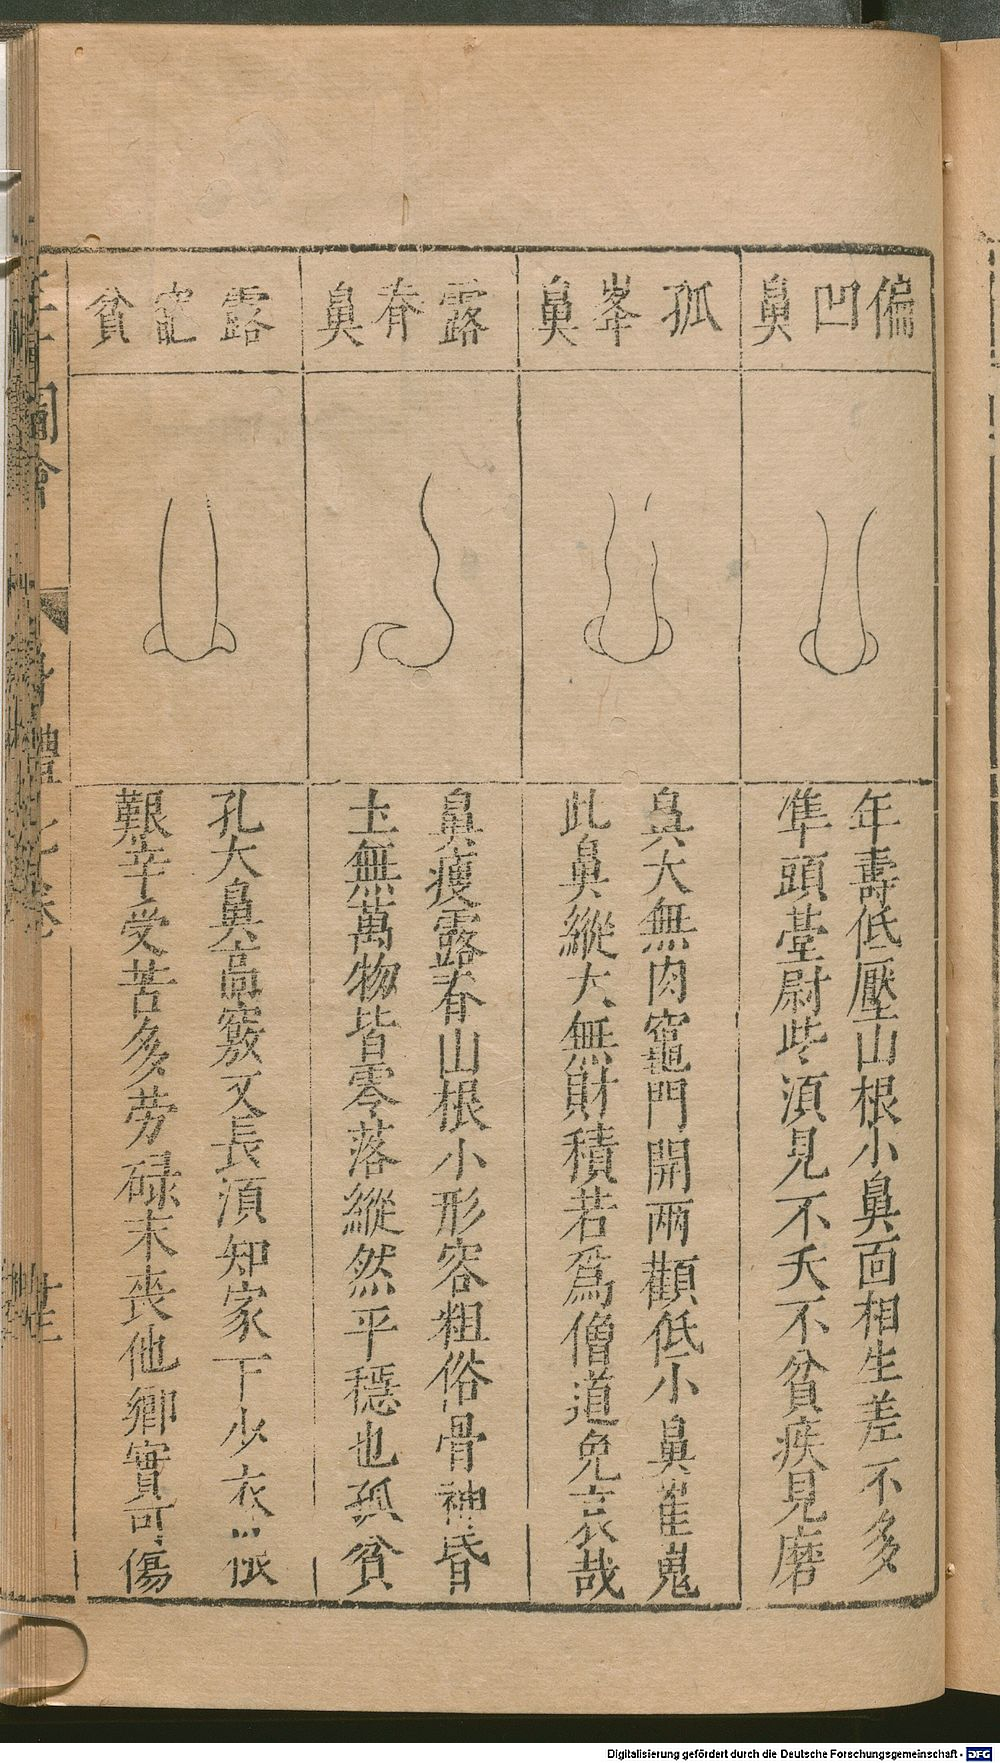 偏凹鼻
年壽低壓山根小鼻面相生差不多
準頭臺尉些湏見不夭不貧疾見磨
孤峯鼻
鼻大無肉竈門開兩顴低小鼻崔嵬
此鼻縱大無財積若爲僧道免哀哉
露脊鼻
鼻瘦露脊山根小形容粗俗骨神昏
土無萬物皆零落縱然平穩也孤貧
露竈貧
孔大鼻高竅又長湏知家下少衣
艱辛受苦多勞碌末丧他鄉實可傷
圖會
身體
卷
Digitalisierung gefördert durch die Deutsche Forschungsgemeinschaft - DFG